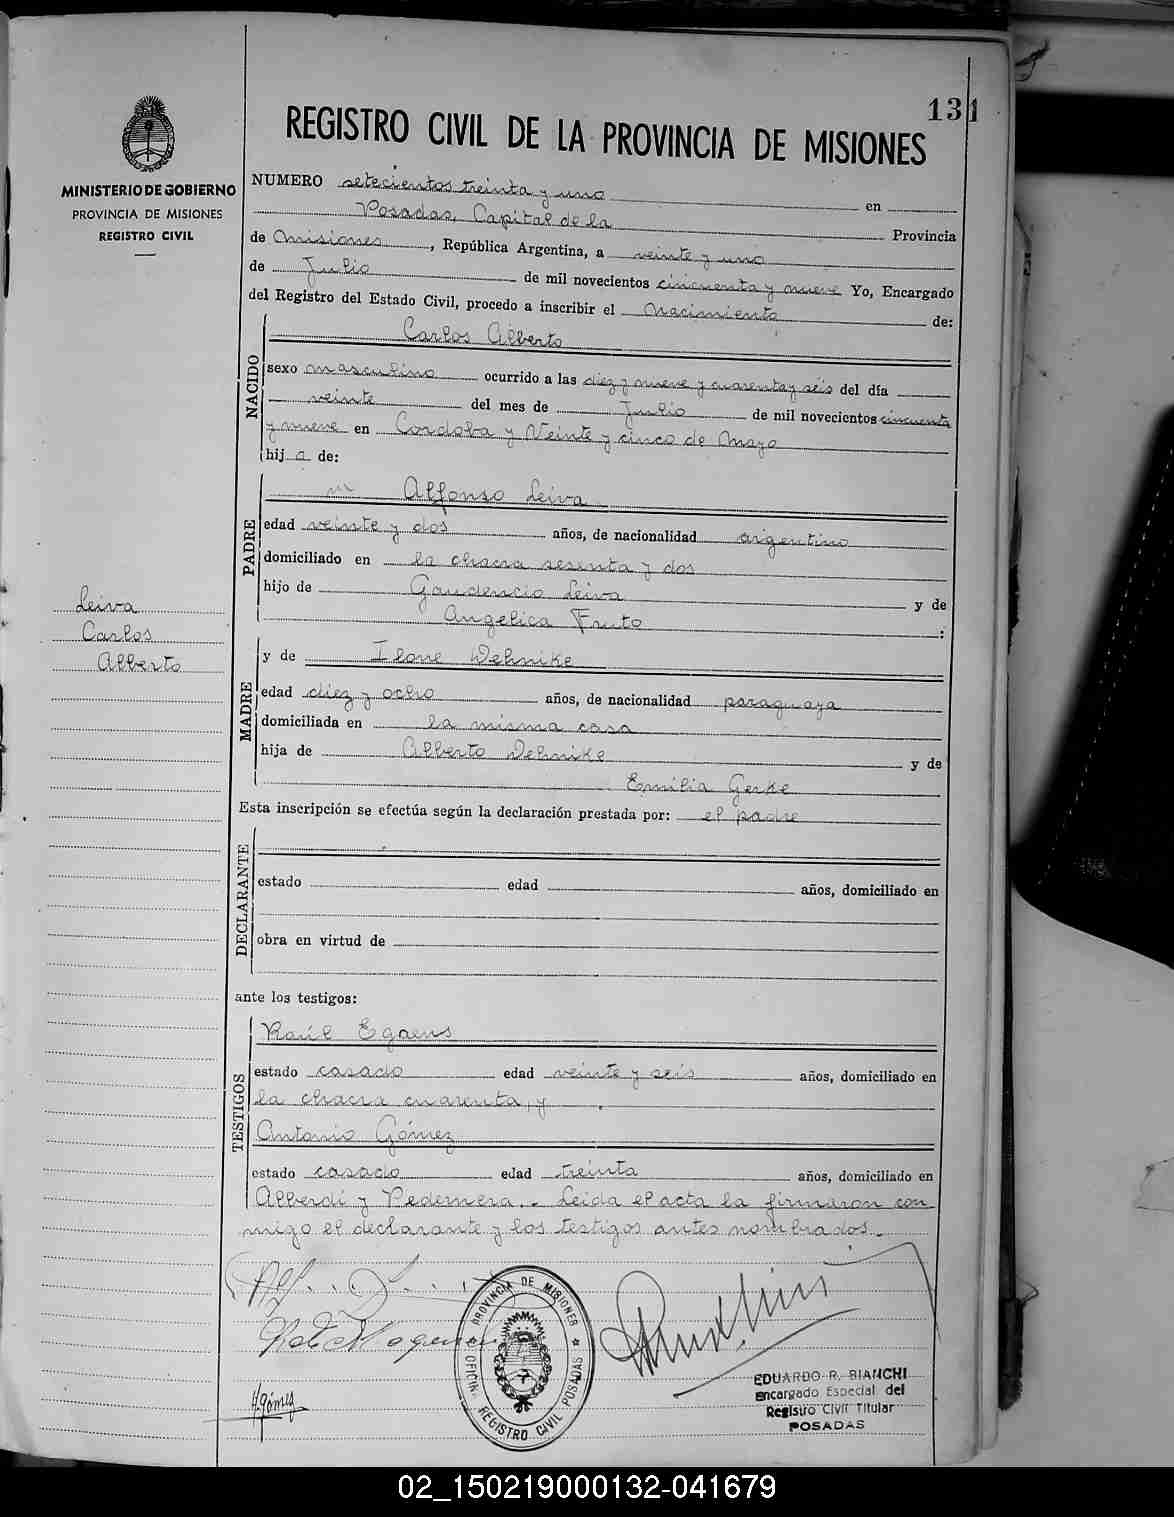 131
REGISTRO CIVIL DE LA PROVINCIA DE MISIONES
MINISTERIO DE GOBIERNO
PROVINCIA DE MISIONES
REGISTRO CIVIL
NUMERO setecientos treinta y uno en
Posadas, Capital de la Provincia
de Misiones, República Argentina, a veinte y uno
de Julio de mil novecientos cincuenta y nueve Yo, Encargado
del Registro del Estado Civil, procedo a inscribir el Nacimiento de:
NACIDO
Carlos Alberto
sexo masculino ocurrido a las diez y nueve y cuarenta y seis del día
veinte del mes de Julio de mil novecientos cincuenta
y nueve en Cordoba y Veinte y cinco de Mayo
hij o de:
PADRE
Alfonso Leiva
edad veinte y dos años, de nacionalidad argentino
domiciliado en la chacra sesenta y dos
hijo de Gaudencio Leiva y de
Angelica Fruto :
Leiva
Carlos
Alberto
MADRE
y de Ilone Wehnike
edad diez y ocho años, de nacionalidad paraguaya
domiciliada en la misma casa
hija de Alberto Wehnike y de
Emilia Gerke
Esta inscripción se efectúa según la declaración prestada por: el padre
DECLARANTE
estado edad años, domiciliado en
obra en virtud de
ante los testigos:
TESTIGOS
Raúl Egaens
estado casado edad veinte y seis años, domiciliado en
la chacra cuarenta, y
Antonio Gómez
estado casado edad treinta años, domiciliado en
Alberdi y Pedernera.- Leida el acta la firmaron con
migo el declarante y los testigos antes nombrados.
A. Gómez
PROVINCIA DE MISIONES
OFICINA REGISTRO CIVIL POSADAS
EDUARDO R. BIANCHI
Encargado Especial del
Registro Civil Titular
POSADAS
02_150219000132-041679